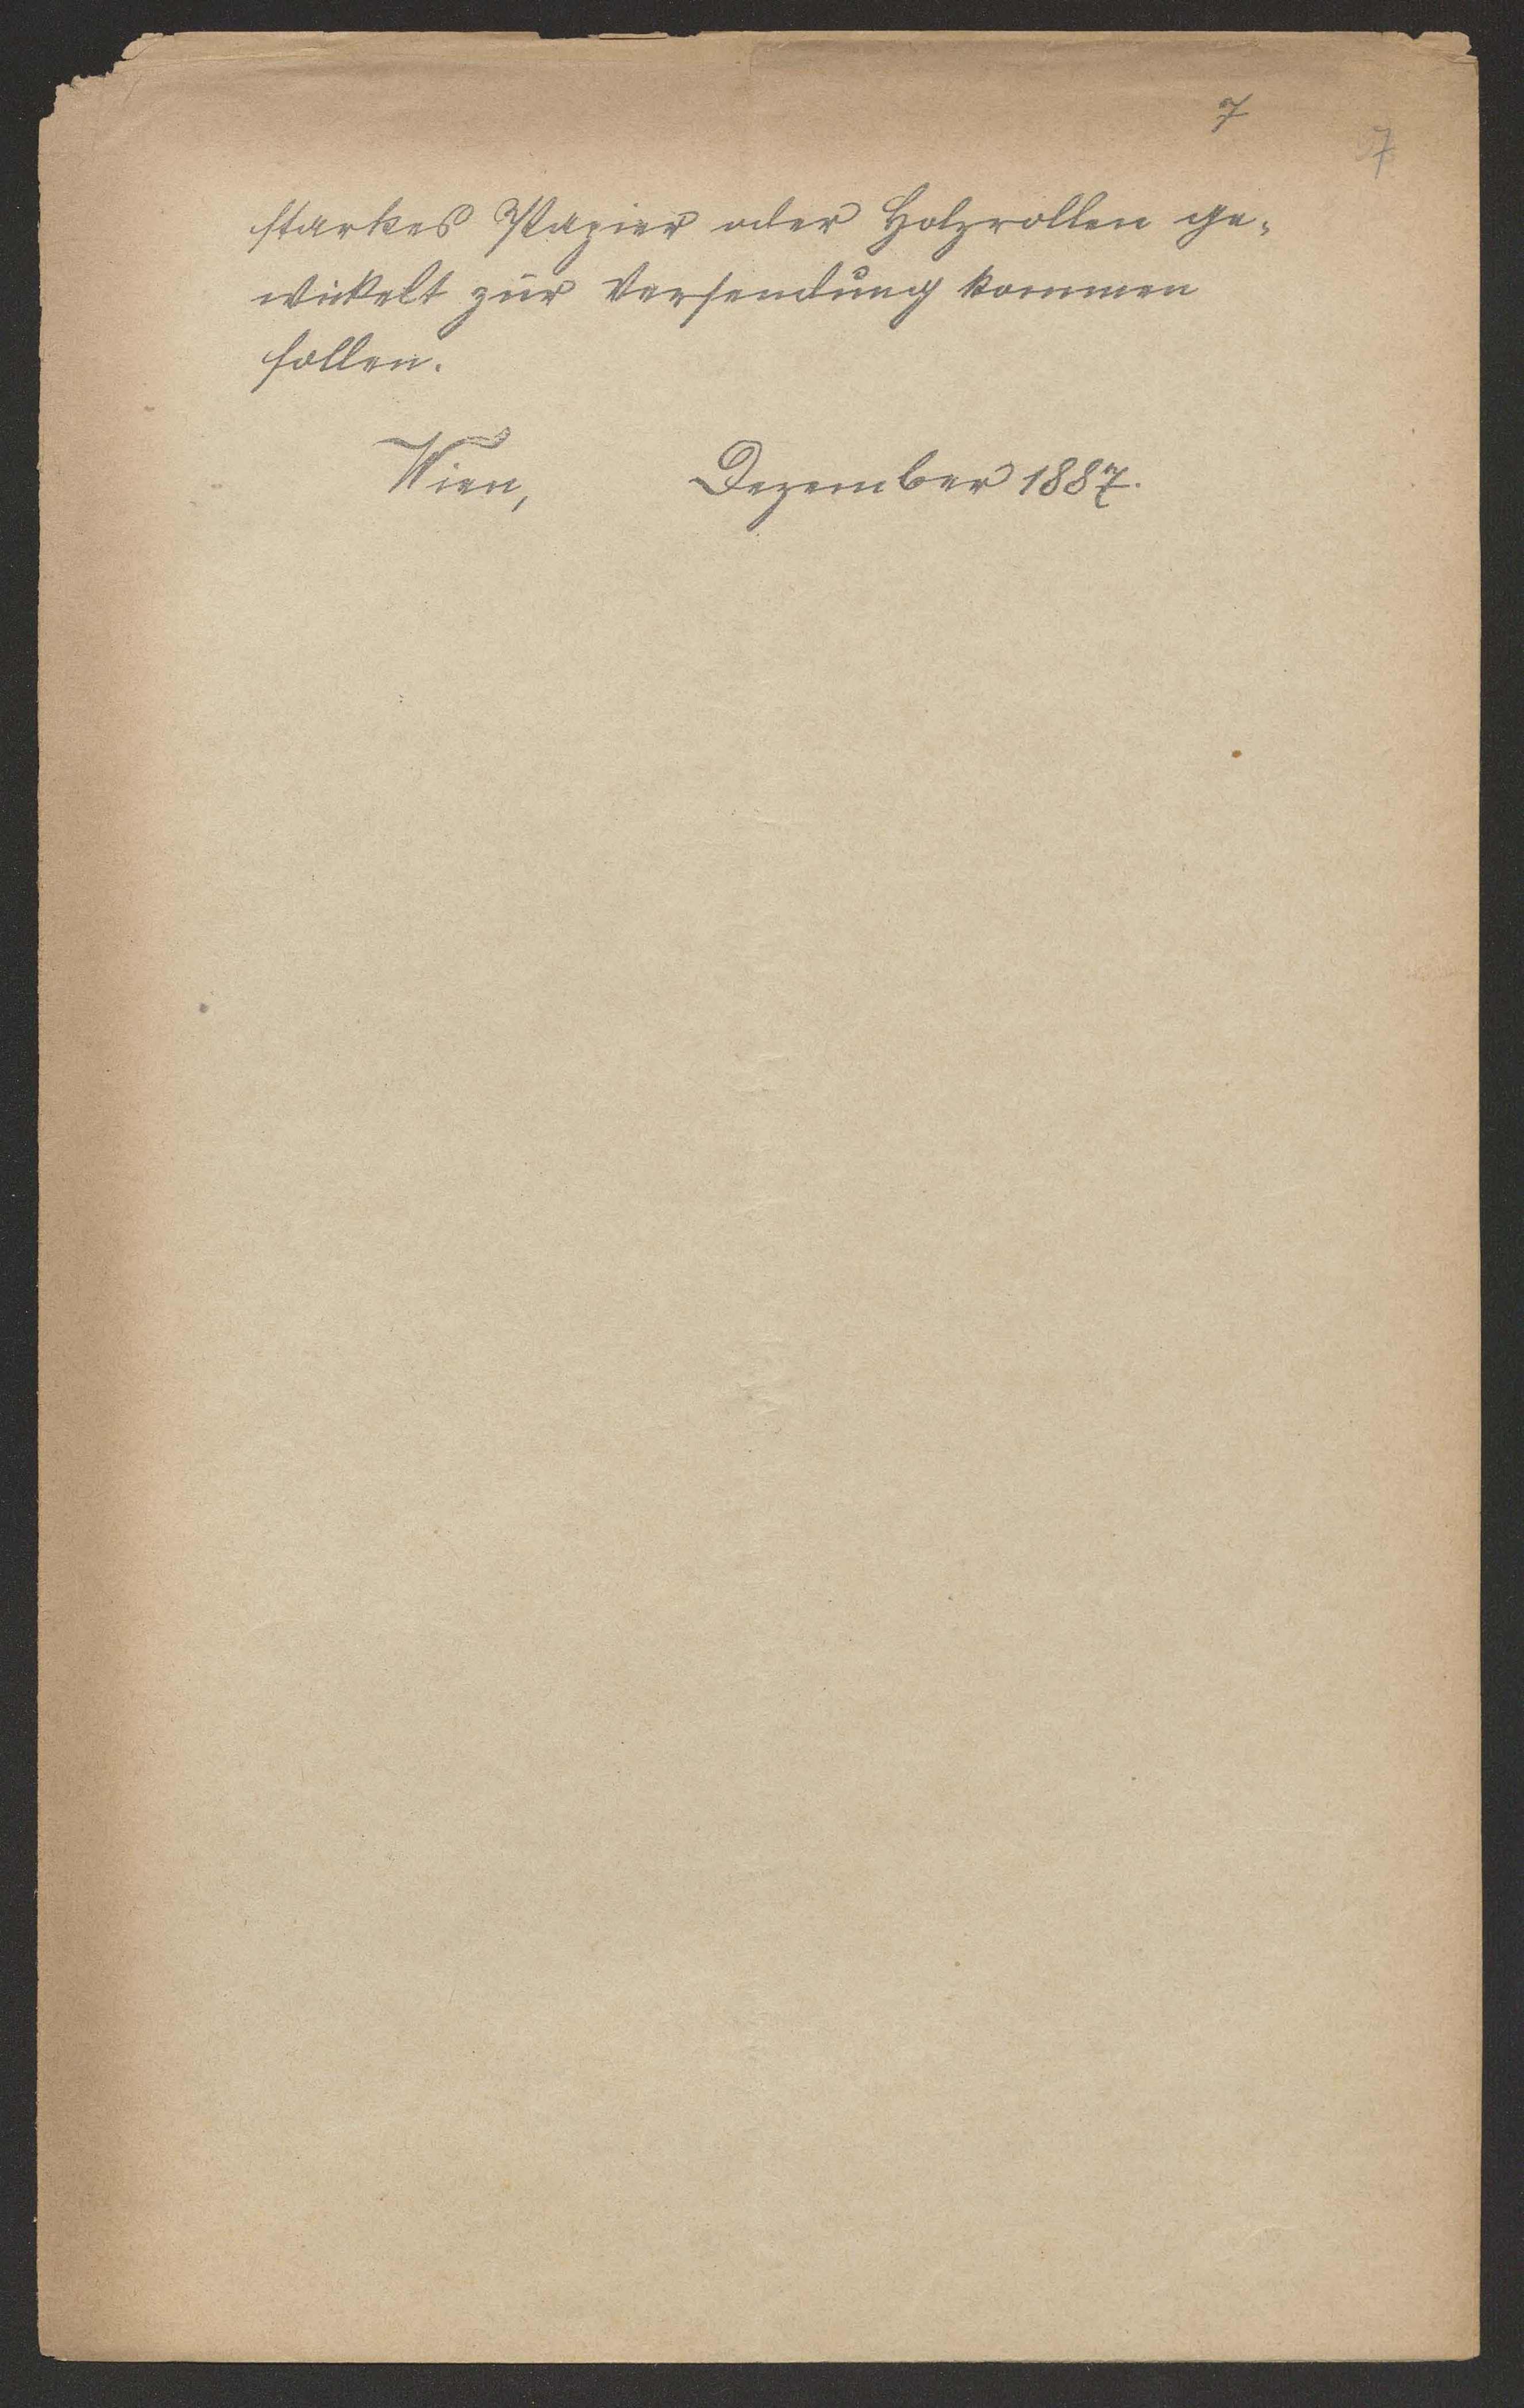 7
7
starkes Papier oder Holzrollen ge-
wickelt zur Versendung kommen
sollen.
Wien, Dezember 1887.